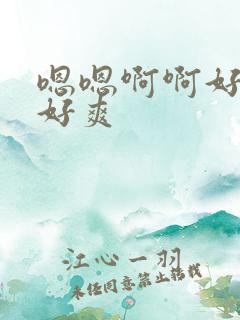 嗯嗯啊啊好
好爽
江心一羽
未经同意禁止转载